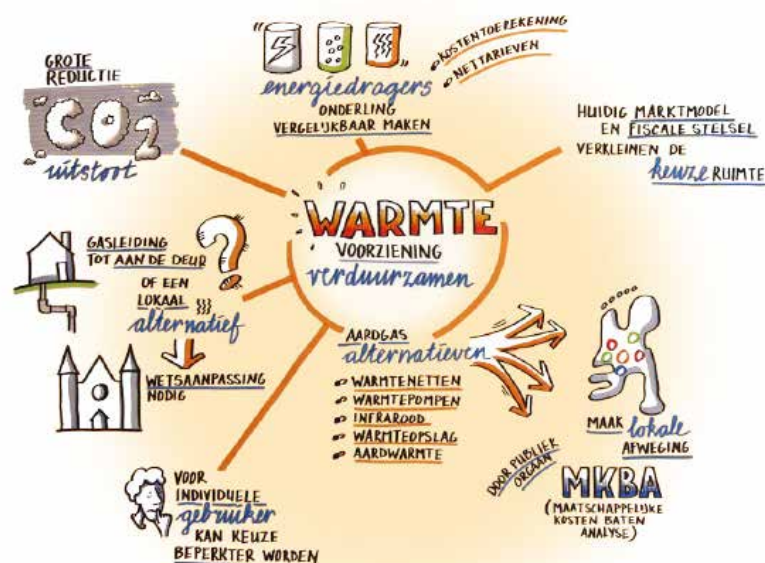 GROTE
REDUCTIE
CO2
uitstoot
energiedragers
ONDERLING
VERGELIJKBAAR MAKEN
KOSTENTOEREKENING
NETTARIEVEN
HUIDIG MARKTMODEL
EN FISCALE STELSEL
VERKLEINEN DE
keuze RUIMTE
WARMTE
VOORZIENING
verduurzamen
GASLEIDING
TOT AAN DE DEUR
OF EEN
LOKAAL
alternatief
?
WETSAANPASSING
NODIG
AARDGAS
alternatieven
WARMTENETTEN
WARMTEPOMPEN
INFRAROOD
WARMTEOPSLAG
AARDWARMTE
MAAK lokale
AFWEGING
DOOR PUBLIEK
ORGAAN
MKBA
(MAATSCHAPPELIJKE
KOSTEN BATEN
ANALYSE)
VOOR
INDIVIDUELE
gebruiker
KAN KEUZE
BEPERKTER WORDEN